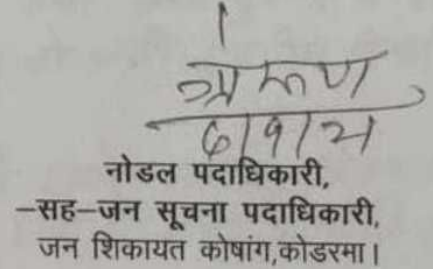 नोडल पदाधिकारी,
-सह-जन सूचना पदाधिकारी,
जन शिकायत कोषांग,कोडरमा।